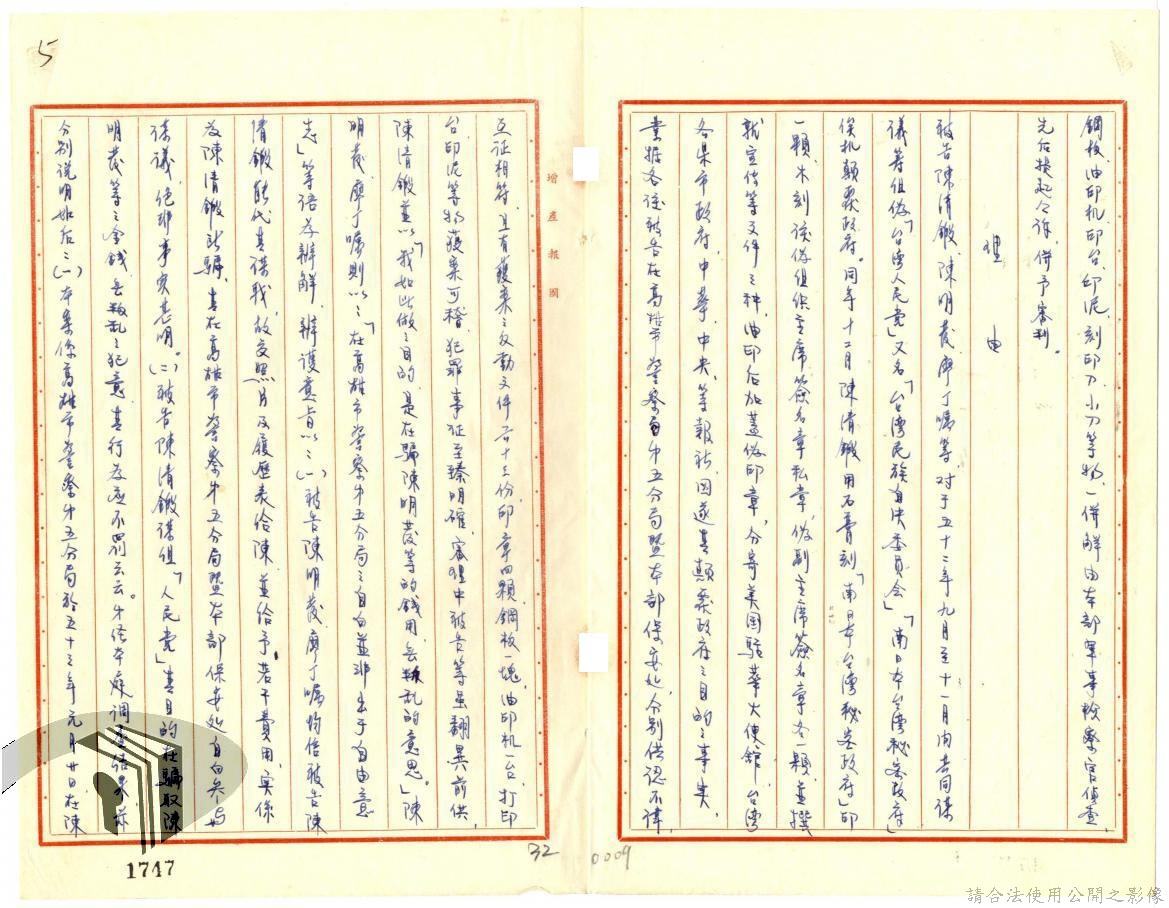 鋼板、油印机印台、印泥、刻印刀、小刀等物、一併解由本部軍事檢察官偵查、
先后提起公诉、併予審判。
理由
被告陳清鍛、陳明發、廖丁嘱等对于五十二年九月至十一月间共同谋
议筹组伪「台湾人民党」又名「台湾民族自决委员会」「南日本台湾秘密政府」
俟机颠覆政府。同年十二月陳清鍛用石膏刻「南日本台湾秘密政府」印
一顆、木刻该伪组织主席簽名章私章、伪副主席簽名章各一顆、並撰
就宣传等文件三种、油印后加盖伪印章、分寄美国駐華大使館、台湾
各县市政府、中華、中央、等報社、图遂其颠覆政府之目的之事实、
業据各该被告在高雄市警察局第五分局暨本部保安处分别供認不諱、
互证相符、且有獲案之反動文件二十三份、印章四顆、鋼板一塊、油印机一台、打印
台印泥等物獲案可稽、犯罪事证至臻明確、審理中被告等虽翻異前供、
陳清鍛並以「我如此做之目的、是在騙陳明發等的钱用、無叛乱的意思。」陳
明發、廖丁嘱則以：「在高雄市警察第五分局之自白並非出于自由意
志」等语为辩解、辩護意旨以：(一)被告陳明發、廖丁嘱均信被告陳
清鍛能代其谋我、故交照片及履歷表给陳、並给予若干費用、实係
为陳清鍛所騙、其在高雄市警察第五分局暨本部保安处自白参与
谋議、绝非事实甚明。(二)被告陳清鍛谋组「人民党」其目的在騙取陳
明發等之金钱、無叛乱之犯意、其行为应不罰云云。第经本庭调查结果、兹
分别说明如后：(一)本案係高雄市警察第五分局於五十三年元月廿日在陳
增產報國
5
1747
32
0009
請合法使用公開之影像